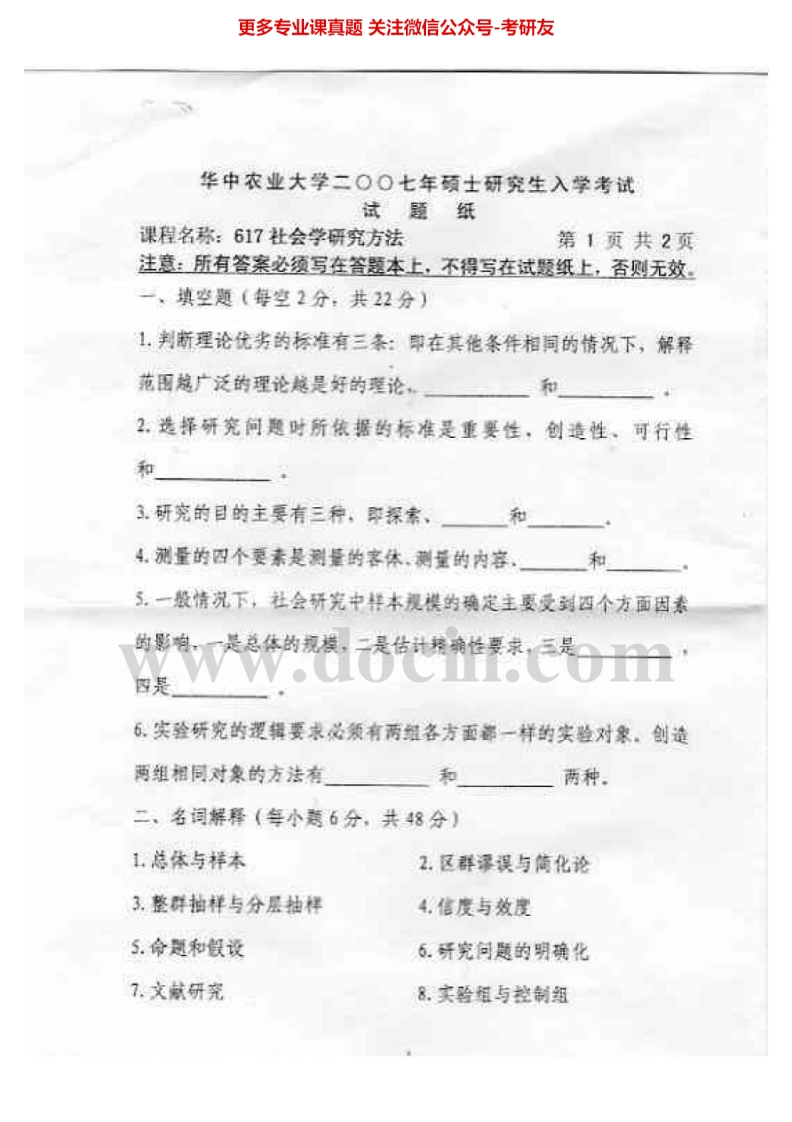 更多专业课真题 关注微信公众号-考研友
华中农业大学二〇〇七年硕士研究生入学考试
试 题 纸
课程名称: 617 社会学研究方法 第 1 页 共 2 页
注意: 所有答案必须写在答题本上, 不得写在试题纸上, 否则无效。
一、填空题(每空 2 分, 共 22 分)
1. 判断理论优劣的标准有三条: 即在其他条件相同的情况下, 解释
范围越广泛的理论越是好的理论, __________ 和__________ 。
2. 选择研究问题时所依据的标准是重要性、创造性、可行性
和____________ 。
3. 研究的目的主要有三种, 即探索、_______和________.
4. 测量的四个要素是测量的客体、测量的内容、_______和________。
5. 一般情况下, 社会研究中样本规模的确定主要受到四个方面因素
的影响, 一是总体的规模, 二是估计精确性要求, 三是__________ ,
四是__________ 。
www.docin.com
6. 实验研究的逻辑要求必须有两组各方面都一样的实验对象, 创造
两组相同对象的方法有___________ 和__________ 两种。
二、名词解释(每小题 6 分, 共 48 分)
1. 总体与样本 2. 区群谬误与简化论
3. 整群抽样与分层抽样 4. 信度与效度
5. 命题和假设 6. 研究问题的明确化
7. 文献研究 8. 实验组与控制组